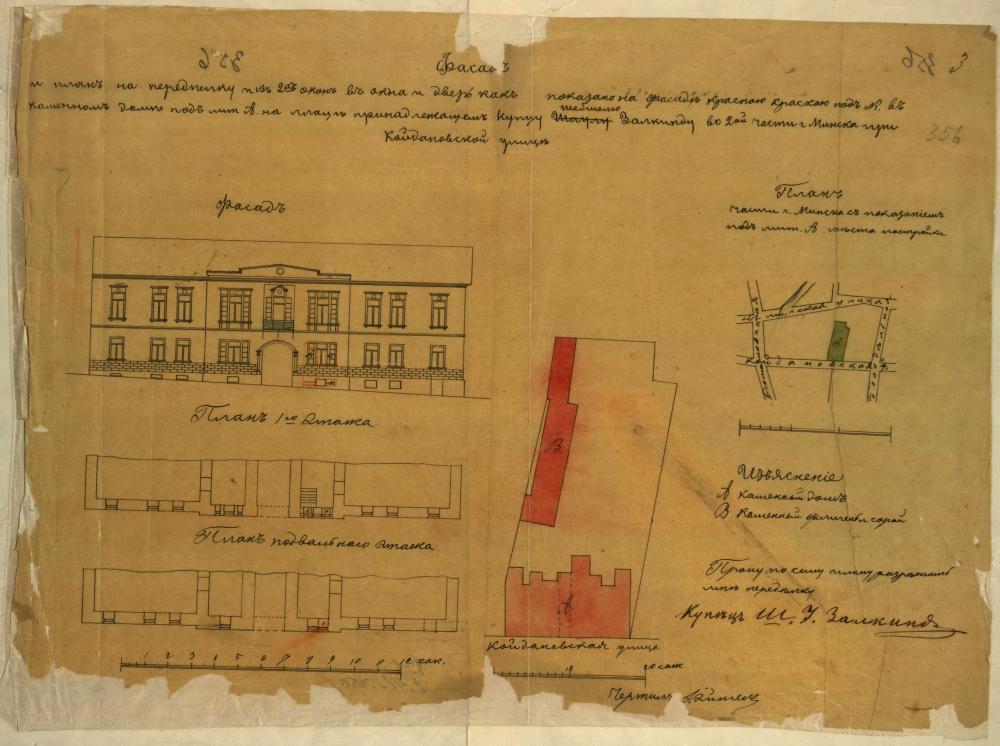 356
356
3
Фасадъ
и планъ на передѣлку изъ 2хъ оконъ въ окна и дверь какъ показано на фасадѣ красною краскою подъ №. въ
шейшелю
каменномъ домѣ подъ лит. А. на плацѣ принадлежащемъ купцу Залкинду во 2ой части г. Минска при
Койдановской улицѣ
356
Фасадъ
Планъ
части г. Минска съ показаніемъ
подъ лит. А мѣста постройки
улица
Койдановская
Планъ 1го этажа
Планъ подвальнаго этажа
В
А
Изъясненіе
А каменный домъ
В каменный сарай
Прошу по сему плану разрѣшить
мнѣ передѣлку
Купецъ Ш. У. Залкиндъ
Койдановская улица
1 2 3 4 5 6 7 8 9 10 11 12 саж.
10 20 саж
Чертилъ